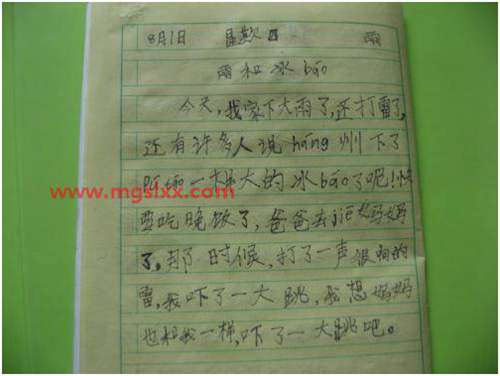 8月1日 星期日 雨
雨和冰bāo
今天,我家下大雨了,还打雷了,
还有许多人说háng州下了
一样大的冰bāo了呢!快
要吃晚饭了,爸爸去jiē妈妈
了,那时候,打了一声很响的
雷,我吓了一大跳,我想妈妈
也和我一样,吓了一大跳吧。
www.mgslxx.com